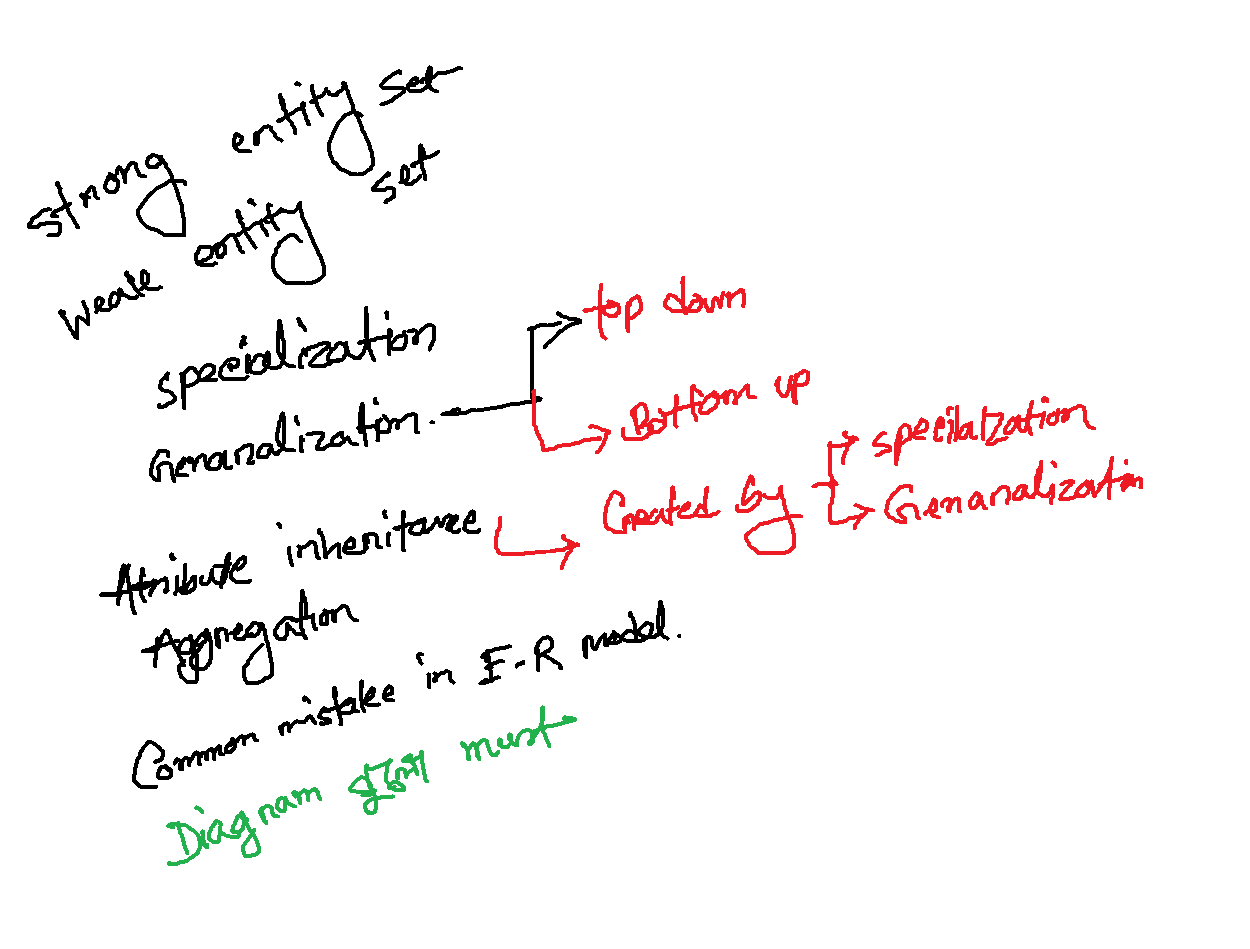 strong entity set
weak entity set
specialization
top down
Genanalization.
Bottom up
Attribute inheritance
Created by
specilatzation
Genanalization
Aggregation
Common mistake in E-R model.
Diagram must